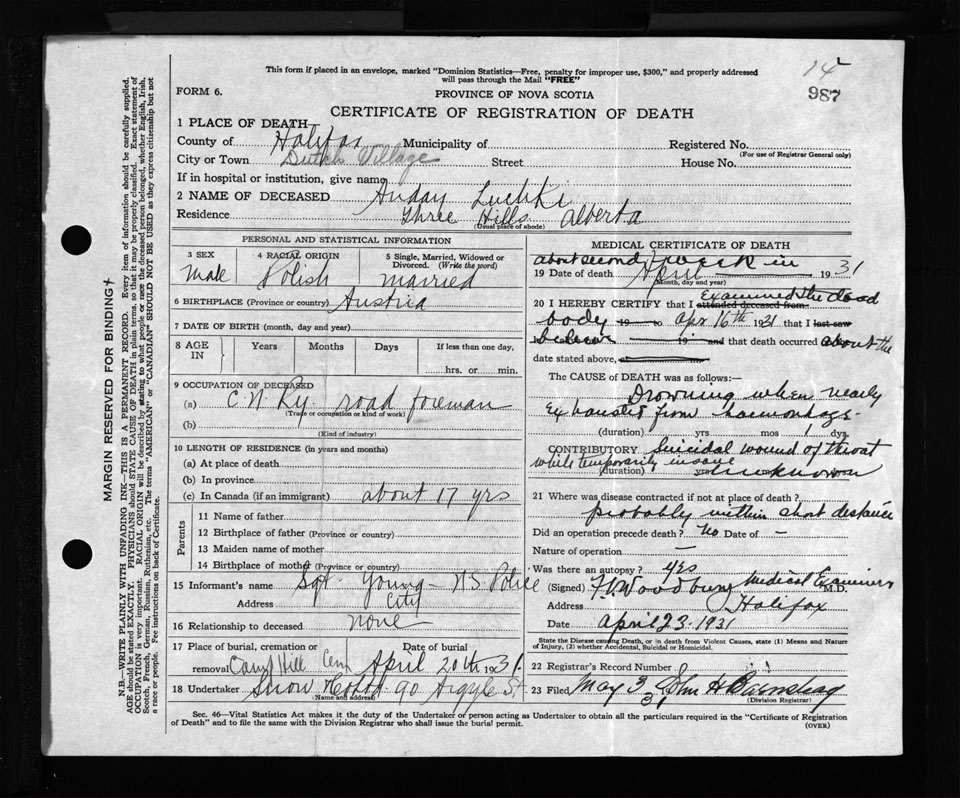 This form if placed in an envelope, marked "Dominion Statistics—Free, penalty for improper use, $300," and properly addressed
will pass through the Mail "FREE"
14
987
FORM 6.
PROVINCE OF NOVA SCOTIA
CERTIFICATE OF REGISTRATION OF DEATH
1 PLACE OF DEATH
County of Halifax Municipality of Registered No.
(For use of Registrar General only)
City or Town Dutch Village Street House No.
If in hospital or institution, give name
2 NAME OF DECEASED Auday Luchki
Residence Three Hills Alberta
(Usual place of abode)
PERSONAL AND STATISTICAL INFORMATION
3 SEX 4 RACIAL ORIGIN 5 Single, Married, Widowed or
Divorced. (Write the word)
Male Polish married
6 BIRTHPLACE (Province or country) Austria
7 DATE OF BIRTH (month, day and year)
8 AGE IN Years Months Days If less than one day,
hrs. or min.
9 OCCUPATION OF DECEASED
(a) C.N. Ry. road foreman
(Trade or occupation or kind of work)
(b)
(Kind of industry)
10 LENGTH OF RESIDENCE (in years and months)
(a) At place of death
(b) In province
(c) In Canada (if an immigrant) about 17 yrs
Parents
11 Name of father
12 Birthplace of father (Province or country)
13 Maiden name of mother
14 Birthplace of mother (Province or country)
15 Informant's name Sgt. Young - N.S. Police
Address City
16 Relationship to deceased none
17 Place of burial, cremation or removal Date of burial
Camp Hill Cem April 20th 1931.
18 Undertaker Snow 90 Argyle St.
Name and address
MEDICAL CERTIFICATE OF DEATH
about second week in
19 Date of death April 1931
(Month, day and year)
20 I HEREBY CERTIFY that I attended deceased from Examined the dead
body 19 to Apr 16th 1931 that I last saw
19 and that death occurred about the
date stated above,
The CAUSE OF DEATH was as follows:
Drowning when nearly
exhausted from haemorrhage.
(duration) yrs mos 1 dys.
CONTRIBUTORY Suicidal wound of throat
while temporarily insane
(duration) unknown
21 Where was disease contracted if not at place of death?
probably within short distance
Did an operation precede death? No Date of -
Nature of operation —
Was there an autopsy? yes
(Signed) Woodbury Medical Examiner M.D.
Address Halifax
Date April 23. 1931
State the Disease causing Death, or in death from Violent Causes, state (1) Means and Nature
of Injury, (2) whether Accidental, Suicidal or Homicidal.
22 Registrar's Record Number
23 Filed May 3 31 John H
(Division Registrar)
Sec. 46—Vital Statistics Act makes it the duty of the Undertaker or person acting as Undertaker to obtain all the particulars required in the "Certificate of Registration
of Death" and to file the same with the Division Registrar who shall issue the burial permit.
(OVER)
MARGIN RESERVED FOR BINDING
N.B.—WRITE PLAINLY WITH UNFADING INK—THIS IS A PERMANENT RECORD. Every item of information should be carefully supplied.
AGE should be stated EXACTLY. PHYSICIANS should STATE CAUSE OF DEATH in plain terms, so that it may be properly classified. Exact statement of
OCCUPATION is very important. RACIAL ORIGIN will be described by stating to what people or race the deceased person belonged, whether English, Irish,
Scotch, French, German, Russian, Ruthenian, etc. The terms "AMERICAN" or "CANADIAN" SHOULD NOT BE USED as they express citizenship but not
a race or people. See instructions on back of Certificate.